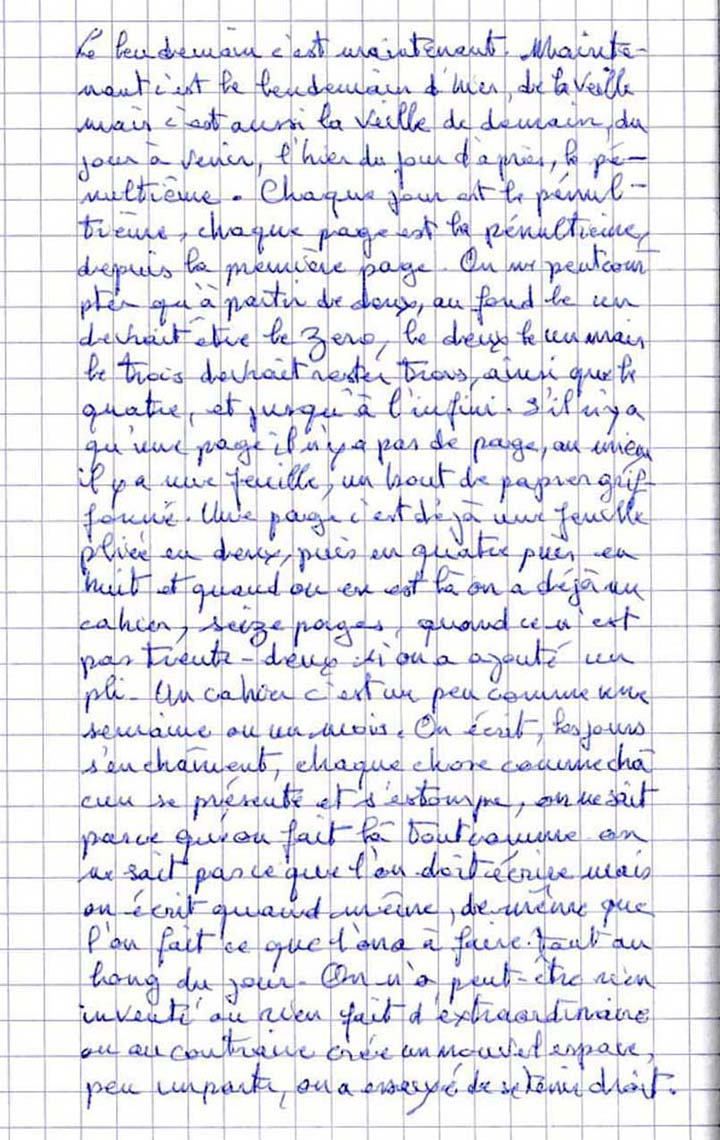 Le lendemain c'est maintenant. Mainte-
nant c'est le lendemain d'hier, de la veille
mais c'est aussi la veille de demain, du
jour à venir, l'hier du jour d'après, le pé-
nultième. Chaque jour est le pénul-
tième, chaque page est la pénultième,
depuis la première page. On ne peut com
pter qu'à partir de deux, au fond le un
devrait être le zero, le deux le un mais
le trois devrait rester trois, ainsi que le
quatre, et jusqu'à l'infini. S'il n'y a
qu'une page il n'y a pas de page, au mieux
il y a une feuille, un bout de papier grif-
fonné. Une page c'est déjà une feuille
pliée en deux, puis en quatre puis en
huit et quand on en est là on a déjà un
cahier, seize pages, quand ce n'est
pas trente-deux si on a ajouté un
pli. Un cahier c'est un peu comme une
semaine ou un mois. On écrit, les jours
s'enchaînent, chaque chose comme cha
cun se présente et s'estompe, on ne sait
pas ce qu'on fait là tout comme on
ne sait pas ce que l'on doit écrire mais
on écrit quand même, de même que
l'on fait ce que l'on a à faire tout au
long du jour. On n'a peut-être rien
inventé ou rien fait d'extraordinaire
ou au contraire créé un nouvel espace,
peu importe, on a essayé de se tenir droit.